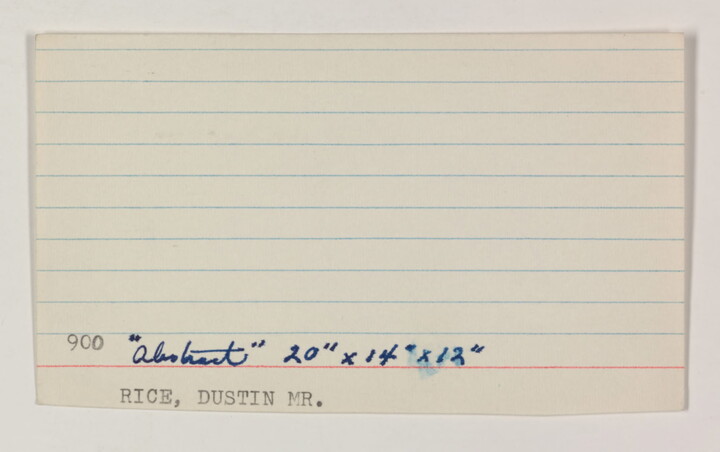 900 "Abstract" 20" x 14" x 12"
RICE, DUSTIN MR.